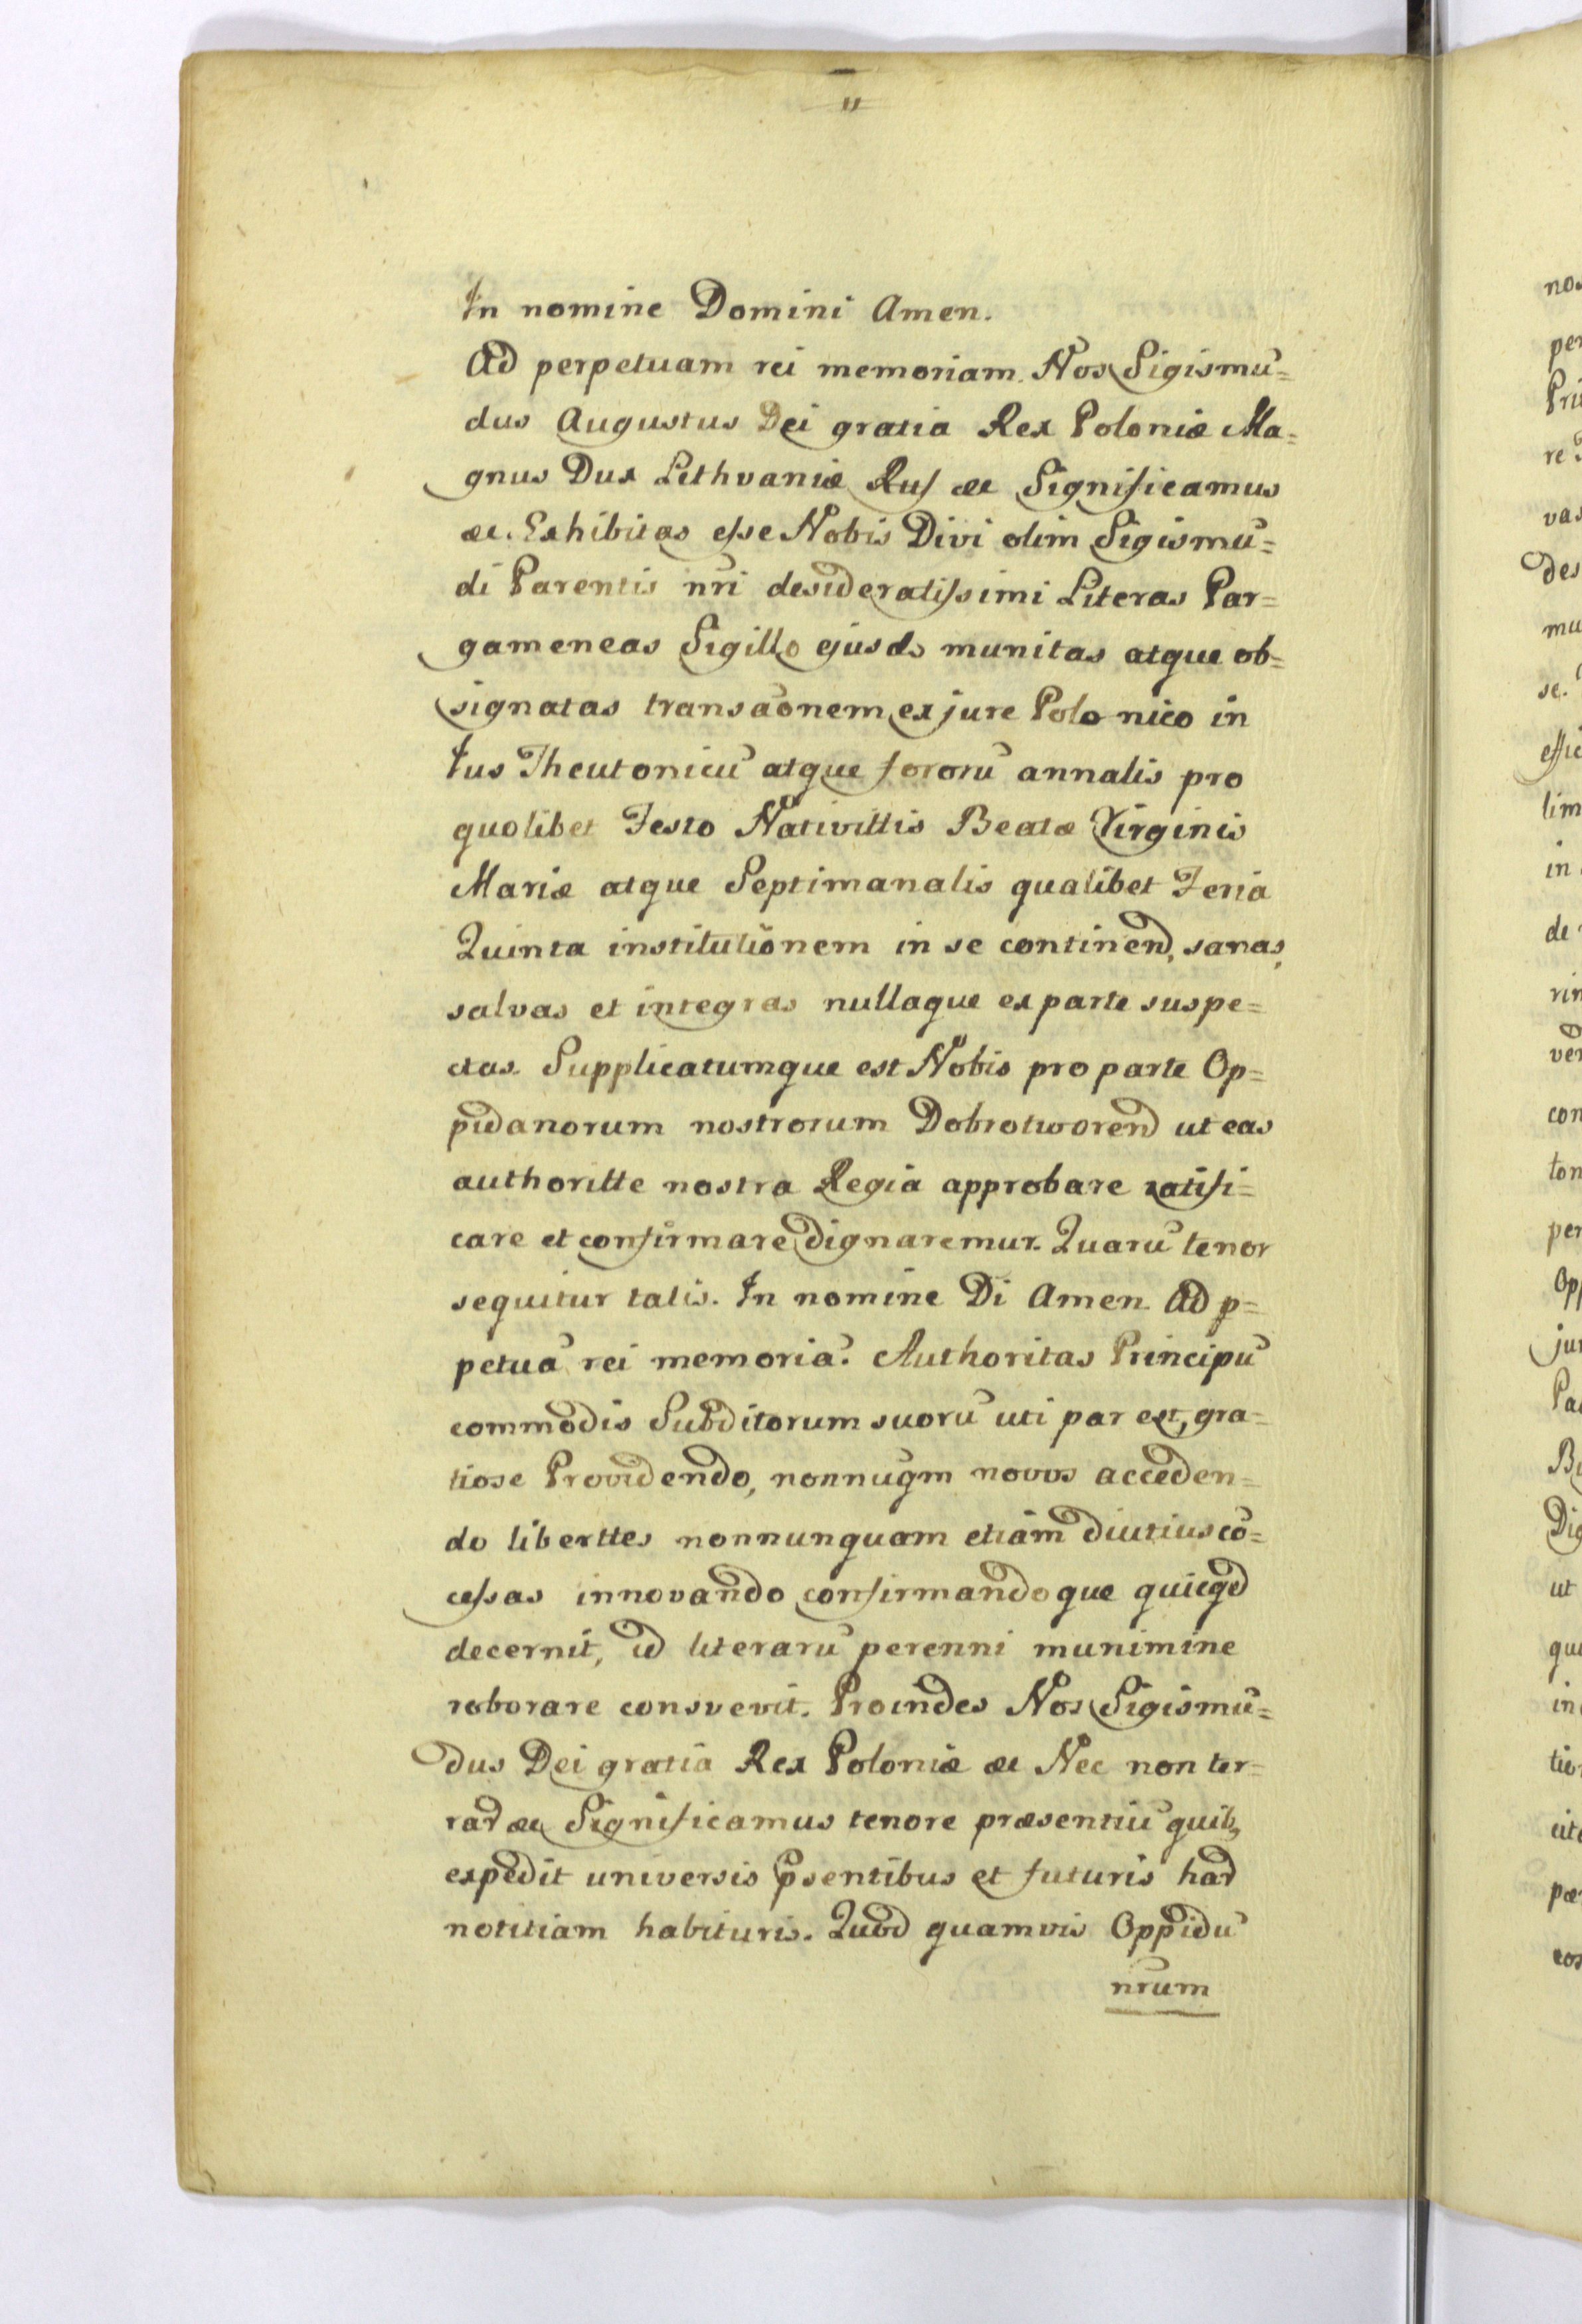 "
In nomine Domini Amen.
Ad perpetuam rei memoriam. Nos Sigismũ=
dus Augustus Dei gratia Rex Poloniæ Ma=
gnus Dux Lithvaniæ Rus æc Significamus
æc. Exhibitas esse Nobis Divi olim Sigismũ=
di Parentis nr̃i desideratissimi Literas Par=
gameneas Sigillo ejusd. munitas atque ob=
signatas transaõnem ex jure Polonico in
Jus Theutonicũ atque fororũ annalis pro
quolibet Festo Nativittis Beatæ Virginis
Mariæ atque Septimanalis qualibet Feria
Quinta institutiõnem in se continend, sanas,
salvas et integras nullaque ex parte suspe=
ctas. Supplicatumque est Nobis pro parte Op=
pidanorum nostrorum Dobrotworend ut eas
authoritte nostra Regia approbare ratifi=
care et confirmare dignaremur. Quarũ tenor
sequitur talis. In nomine Di Amen. Ad p=
petuã rei memoriã. Authoritas Principũ
commodis Subditorum suorũ uti par est, gra=
tiose Providendo, nonnuqm novas acceden=
do liberttes nonnunquam etiam diutius cõ=
cessas innovando confirmandoque quicqd
decernit, id literarũ perenni munimine
roborare consvevit. Proindes Nos Sigismũ=
dus Dei gratia Rex Poloniæ æc Nec non ter=
rar æc Significamus tenore præsentiũ quib,
expedit universis p̃sentibus et futuris har
notitiam habituris. Quod quamvis Oppidũ
nr̃um